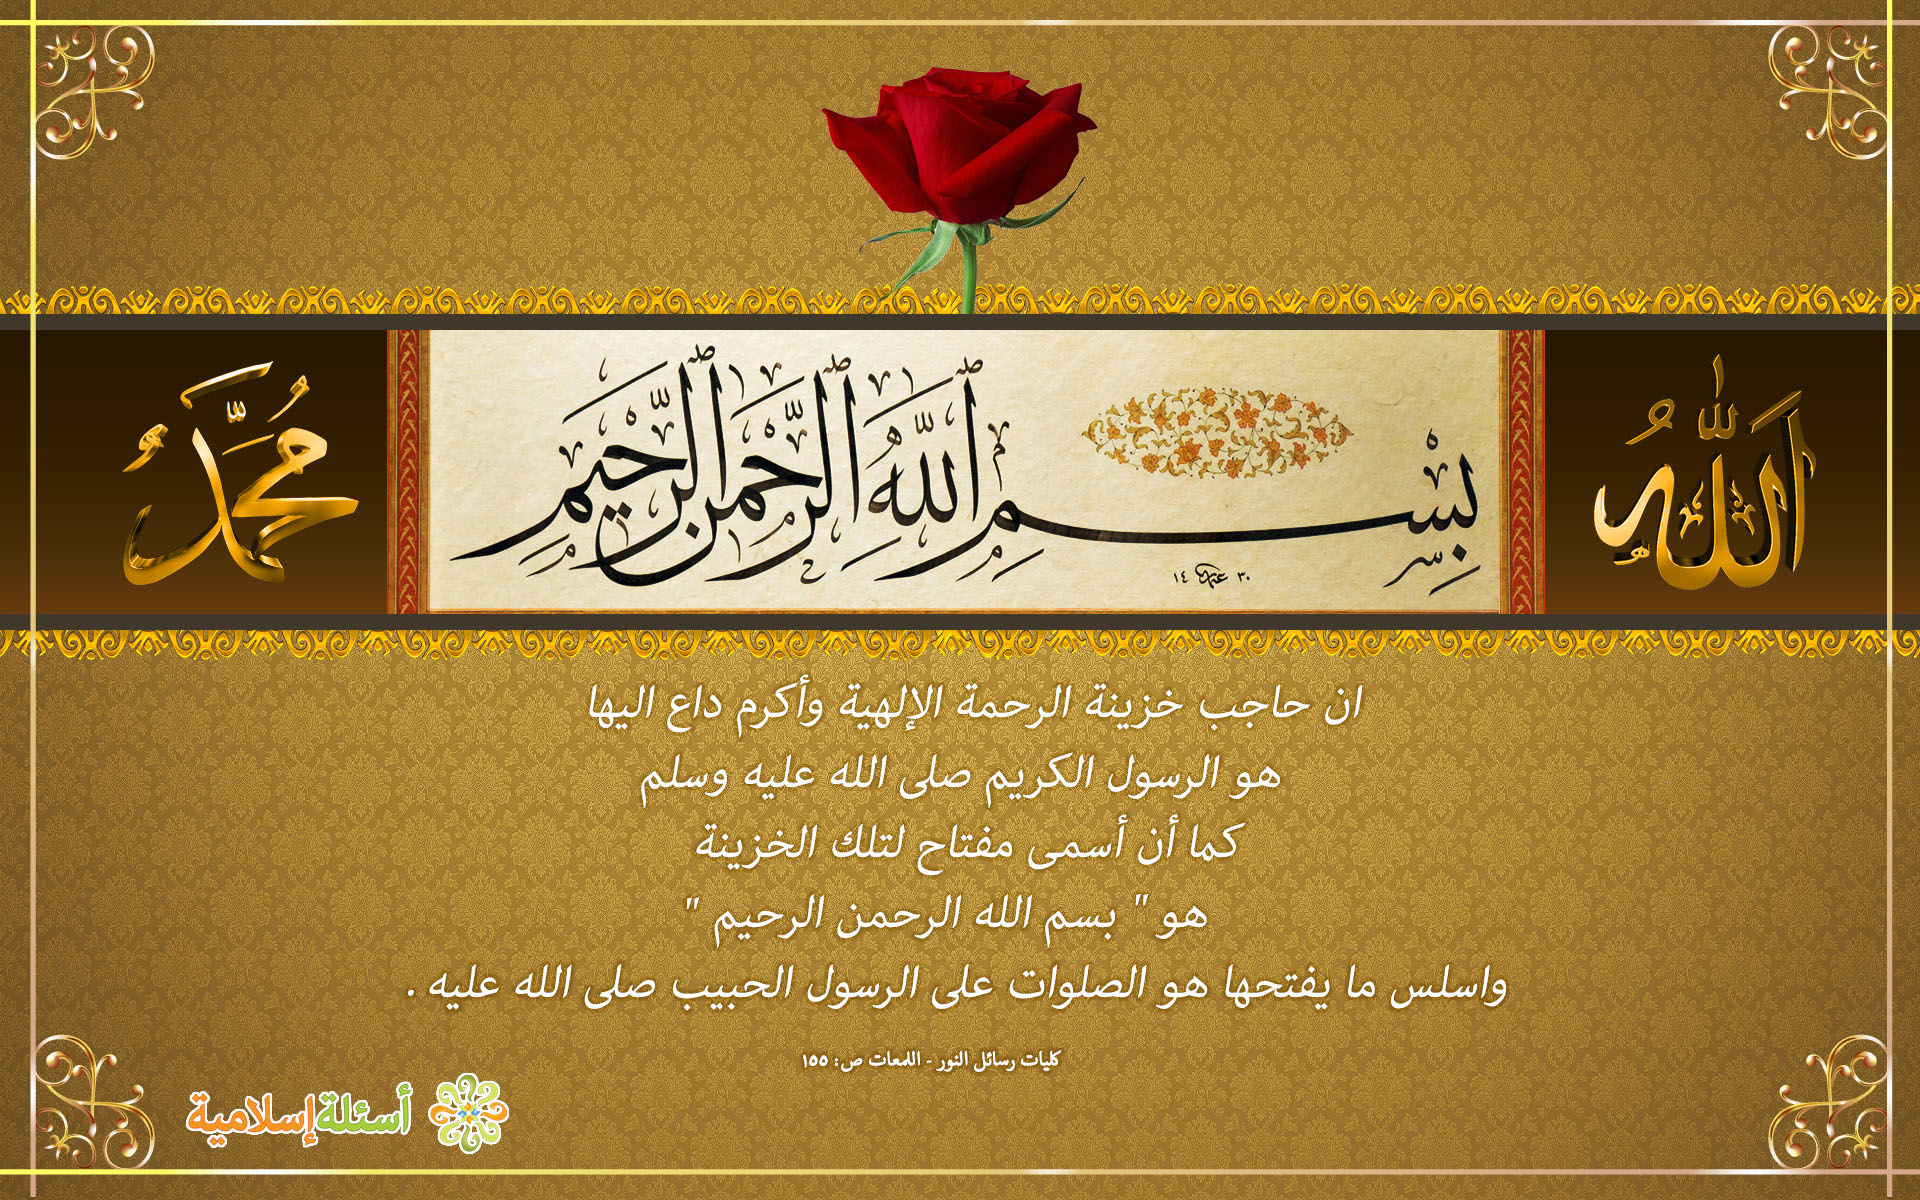 اَللّٰهُ
بِسْمِ ٱللَّهِ ٱلرَّحْمٰنِ ٱلرَّحِيمِ
مُحَمَّدٌ
ان حاجب خزينة الرحمة الإلهية وأكرم داع اليها
هو الرسول الكريم صلى الله عليه وسلم
كما أن أسمى مفتاح لتلك الخزينة
هو " بسم الله الرحمن الرحيم "
واسلس ما يفتحها هو الصلوات على الرسول الحبيب صلى الله عليه .
كليات رسائل النور - اللمعات ص: ١٥٥
أسئلة إسلامية